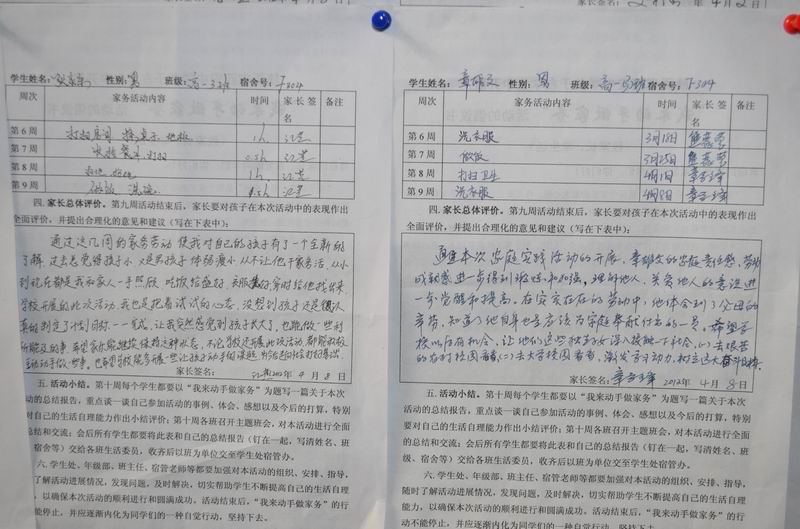 学生姓名： 性别：男 班级：高一3班 宿舍号：F304
周次 家务活动内容 时间 家长签名 备注
第6周 1h
第7周 0.5h
第8周 1h
第9周 做饭 洗碗 0.5h
四.家长总体评价。第九周活动结束后，家长要对孩子在本次活动中的表现作出
全面评价，并提出合理化的意见和建议（写在下表中）：
通过这几周的家务劳动 使我对自己的孩子有了一个全新的
了解。过去总觉得孩子小，又是男孩子 体弱瘦小 从不让他干家务活，从小
到现在都是我和家人一手照顾，吃饭给盛好，衣服 好，穿时给他找出来，
学校开展的此次活动，我也是抱着试试的心态，没想到孩子还是很认
真的制定了计划目标，一一完成，让我突然感觉到孩子长大了，也能做一些力
所能及的事，希望家长能继续保持这种状态，不论学校还展此次活动 都能积极
主动动手做一些事。也希望学校能多展一些让孩子动手的课题
家长签名： 2012年4月8日
五.活动小结。第十周每个学生都要以“我来动手做家务”为题写一篇关于本次
活动的总结报告，重点谈一谈自己参加活动的事例、体会、感想以及今后的打算，特别
对自己的生活自理能力作出小结评价；第十周各班召开主题班会，对本活动进行全面
总结和交流；会后所有学生都要将此表和自己的总结报告（钉在一起，写清姓名、班
宿舍等）交给各班生活委员，收齐后以班为单位交至学生处宿管办。
六.学生处、年级部、班主任、宿管老师等都要加强对本活动的组织、安排、指导，
了解活动进展情况，发现问题，及时解决，切实帮助学生不断提高自己的生活自理
，以确保本次活动的顺利进行和圆满成功。活动结束后，“我来动手做家务”的行
能停止，并应逐渐内化为同学们的一种自觉行动，坚持下去。
家长签名： 年4月2日
学生姓名： 性别：男 班级：高一3班 宿舍号：F304
周次 家务活动内容 时间 家长签名 备注
第6周 洗衣服 3月18日
第7周 做饭 3月25日
第8周 打扫卫生 4月1日
第9周 洗衣服 4月8日
四.家长总体评价。第九周活动结束后，家长要对孩子在本次活动中的表现作出
全面评价，并提出合理化的意见和建议（写在下表中）：
通过本次家庭实践活动的开展，章 文的家庭责任感、劳动
成就感进一步得到 和加强，理解他人、关爱他人的意识进
一步 和提高。在实实在在的劳动中，他体会到了父母的
辛苦，知道了他自身也是应该为家庭奉献付出的一员。希望学
校以后有机会，让他们这些孩子 深入接触一下社会，(一)去艰苦
的农村校园看看，(二)去大学校园看看，激发学习动力，树立远大奋斗目标。
家长签名： 2012年4月8日
五.活动小结。第十周每个学生都要以“我来动手做家务”为题写一篇关于本次
活动的总结报告，重点谈一谈自己参加活动的事例、体会、感想以及今后的打算，特别
要对自己的生活自理能力作出小结评价；第十周各班召开主题班会，对本活动进行全面
的总结和交流；会后所有学生都要将此表和自己的总结报告（钉在一起，写清姓名、班
级、宿舍等）交给各班生活委员，收齐后以班为单位交至学生处宿管办。
六.学生处、年级部、班主任、宿管老师等都要加强对本活动的组织、安排、指导，
随时了解活动进展情况，发现问题，及时解决，切实帮助学生不断提高自己的生活自理
能力，以确保本次活动的顺利进行和圆满成功。活动结束后，“我来动手做家务”的行
动不能停止，并应逐渐内化为同学们的一种自觉行动，坚持下去。